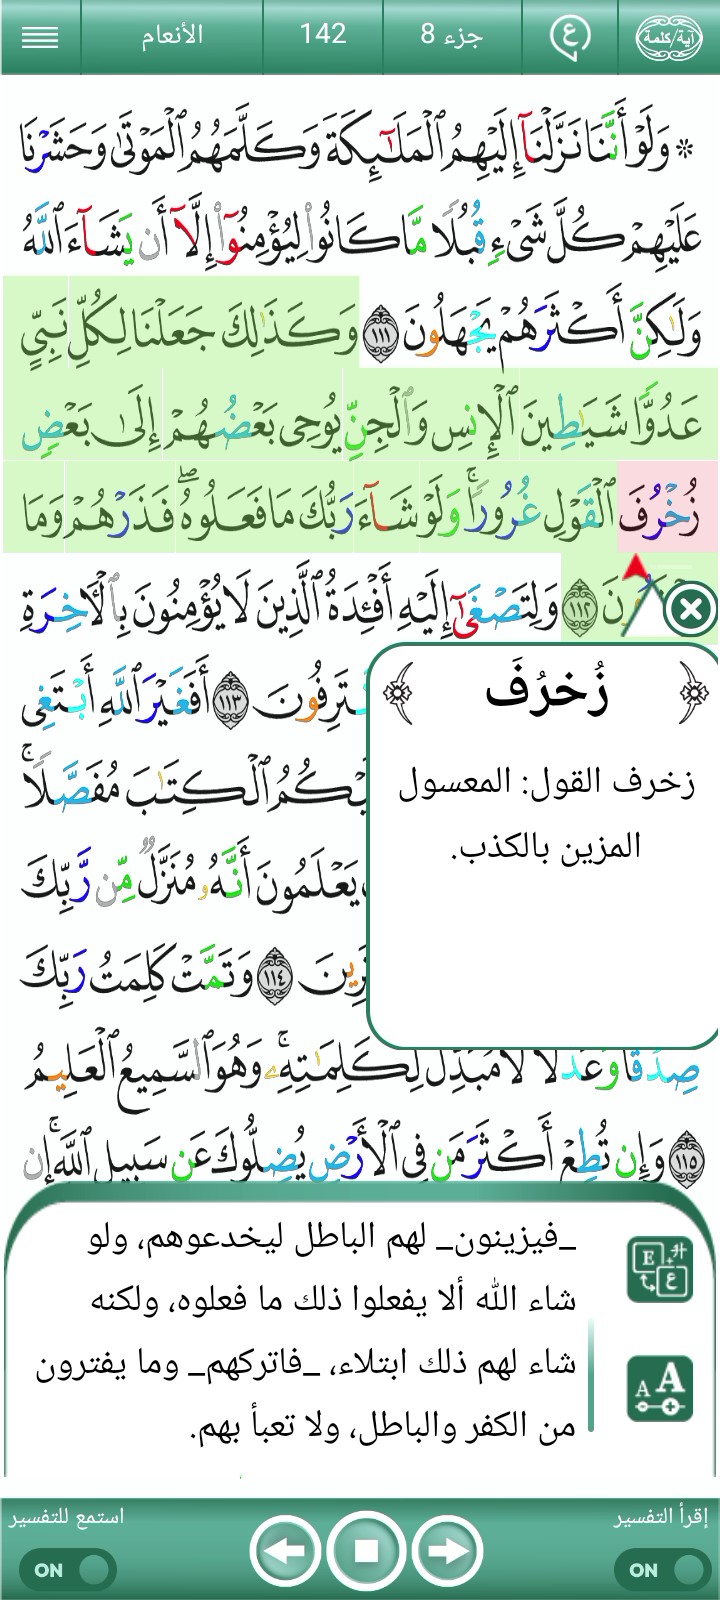 آية/كلمة ع جزء 8 142 الأنعام
۞ وَلَوْ أَنَّنَا نَزَّلْنَآ إِلَيْهِمُ ٱلْمَلَـٰٓئِكَةَ وَكَلَّمَهُمُ ٱلْمَوْتَىٰ وَحَشَرْنَا
عَلَيْهِمْ كُلَّ شَىْءٍ قُبُلًا مَّا كَانُوا۟ لِيُؤْمِنُوٓا۟ إِلَّآ أَن يَشَآءَ ٱللَّهُ
وَلَـٰكِنَّ أَكْثَرَهُمْ يَجْهَلُونَ ١١١ وَكَذَٰلِكَ جَعَلْنَا لِكُلِّ نَبِىٍّ
عَدُوًّا شَيَـٰطِينَ ٱلْإِنسِ وَٱلْجِنِّ يُوحِى بَعْضُهُمْ إِلَىٰ بَعْضٍ
زُخْرُفَ ٱلْقَوْلِ غُرُورًا ۚ وَلَوْ شَآءَ رَبُّكَ مَا فَعَلُوهُ ۖ فَذَرْهُمْ وَمَا
١١٢ وَلِتَصْغَىٰٓ إِلَيْهِ أَفْـِٔدَةُ ٱلَّذِينَ لَا يُؤْمِنُونَ بِٱلْـَٔاخِرَةِ
١١٣ أَفَغَيْرَ ٱللَّهِ أَبْتَغِى
ٱلْكِتَـٰبَ مُفَصَّلًا ۚ
يَعْلَمُونَ أَنَّهُۥ مُنَزَّلٌ مِّن رَّبِّكَ
١١٤ وَتَمَّتْ كَلِمَتُ رَبِّكَ
صِدْقًا وَعَدْلًا لَّا مُبَدِّلَ لِكَلِمَـٰتِهِۦ ۚ وَهُوَ ٱلسَّمِيعُ ٱلْعَلِيمُ
١١٥ وَإِن تُطِعْ أَكْثَرَ مَن فِى ٱلْأَرْضِ يُضِلُّوكَ عَن سَبِيلِ ٱللَّهِ ۚ إِن
زُخرُفَ
زخرف القول: المعسول
المزين بالكذب.
_فيزينون_ لهم الباطل ليخدعوهم، ولو
شاء الله ألا يفعلوا ذلك ما فعلوه، ولكنه
شاء لهم ذلك ابتلاء، _فاتركهم_ وما يفترون
من الكفر والباطل، ولا تعبأ بهم.
E ع
A A
إقرأ التفسير استمع للتفسير
ON ON